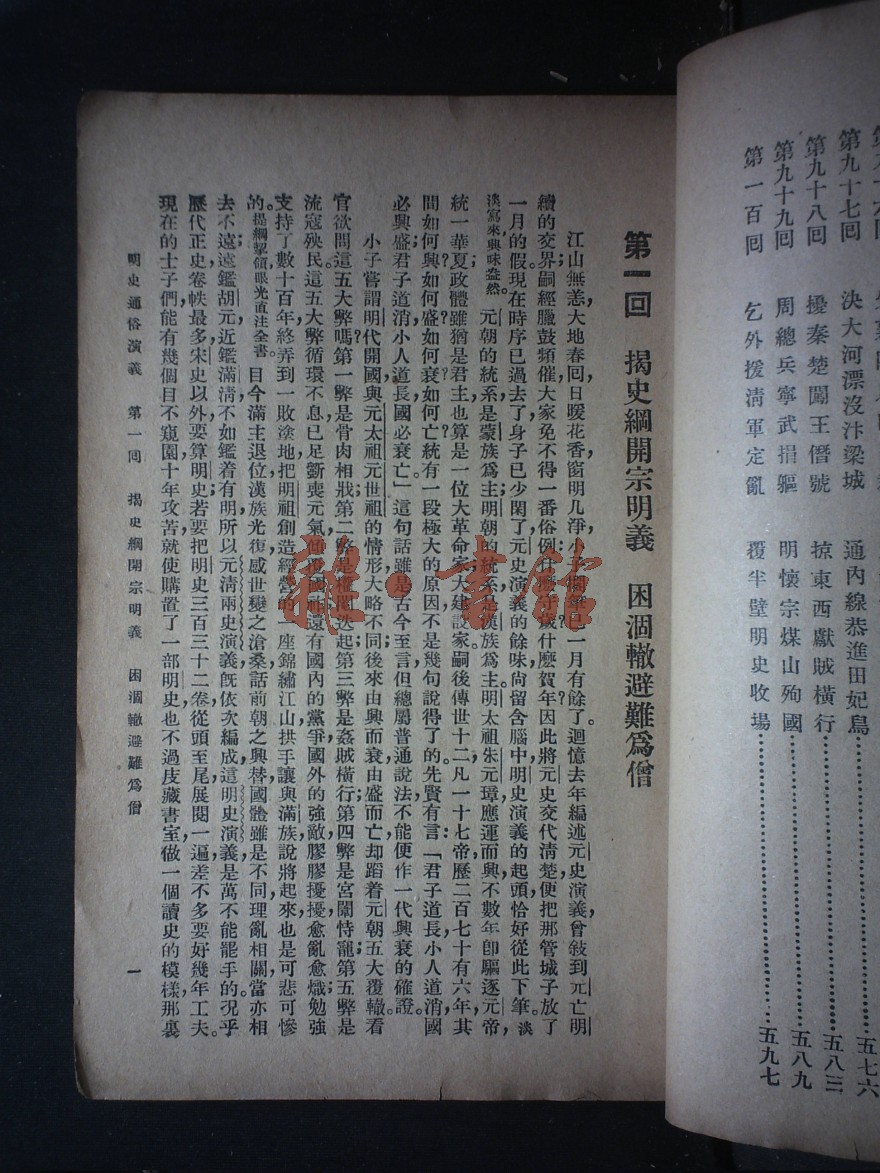 第九十七回　決大河漂沒汴梁城　通內線恭進田妃舄……五七六
第九十八回　擾秦楚闖王僭號　掠東西獻賊橫行……五八三
第九十九回　周總兵寧武捐軀　明懷宗煤山殉國……五八九
第一百回　乞外援清軍定亂　覆半壁明史收場……五九七
第一回　揭史綱開宗明義　困涸轍避難爲僧
江山無恙，大地春回，日暖花香，窗明几淨，小子擱筆已一月有餘了。迴憶去年編述元史演義，曾敍到元亡明
續的交界；嗣經臘鼓頻催，大家免不得一番俗例，什麼守歲？什麼賀年？因此將元史交代清楚，便把那管城子放了
一月的假。現在時序已過去了，身子已少閑了，元史演義的餘味，尚留含腦中，明史演義的起頭，恰好從此下筆。淡
淡寫來興味盎然。元朝的統系，是蒙族爲主；明朝的統系，是漢族爲主。明太祖朱元璋應運而興，不數年卽驅逐元帝，
統一華夏，政體雖猶是君主，也算是一位大革命家，大建設家。嗣後傳世十二，凡一十七帝，歷二百七十有六年，其
間如何興？如何盛？如何衰？如何亡？統有一段極大的原因，不是幾句說得了的。先賢有言：「君子道長，小人道消，國
必興盛；君子道消，小人道長，國必衰亡。」這句話雖是古今至言，但總屬普通說法，不能便作一代興衰的確證。
小子嘗謂明代開國，與元太祖元世祖的情形，大略不同；後來由興而衰，由盛而亡，却蹈着元朝五大覆轍。看
官欲問這五大弊嗎？第一弊是骨肉相戕；第二弊是權閹迭起；第三弊是姦賊橫行；第四弊是宮闈恃寵；第五弊是
流寇殃民。這五大弊循環不息，已足斵喪元氣，傾覆國祚；還有國內的黨爭，國外的強敵，膠膠擾擾，愈亂愈熾，勉強
支持了數十百年，終弄到一敗塗地，把明祖創造經營的一座錦繡江山，拱手讓與滿族，說將起來，也是可悲可慘
的。提綱挈領眼光直注全書。目今滿主退位，漢族光復，感世變之滄桑，話前朝之興替，國體雖是不同，理亂相關，當亦相
去不遠；遠鑑胡元，近鑑滿清，不如鑑着有明，所以元清兩史演義，旣依次編成，這明史演義，是萬不能罷手的。况乎
歷代正史，卷帙最多，宋史以外，要算明史；若要把明史三百三十二卷，從頭至尾，展閱一遍，差不多要好幾年工夫。
現在的士子們，能有幾個目不窺園十年攻苦？就使購置了一部明史，也不過庋藏書室，做一個讀史的模樣，那裏
明史通俗演義　第一回　揭史綱開宗明義　困涸轍避難爲僧　一
雜·書館